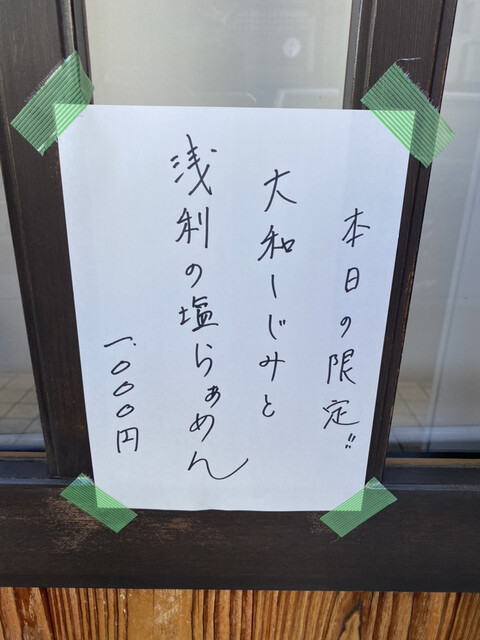 本日の限定!!
大和しじみと
浅利の塩らぁめん
一.000円